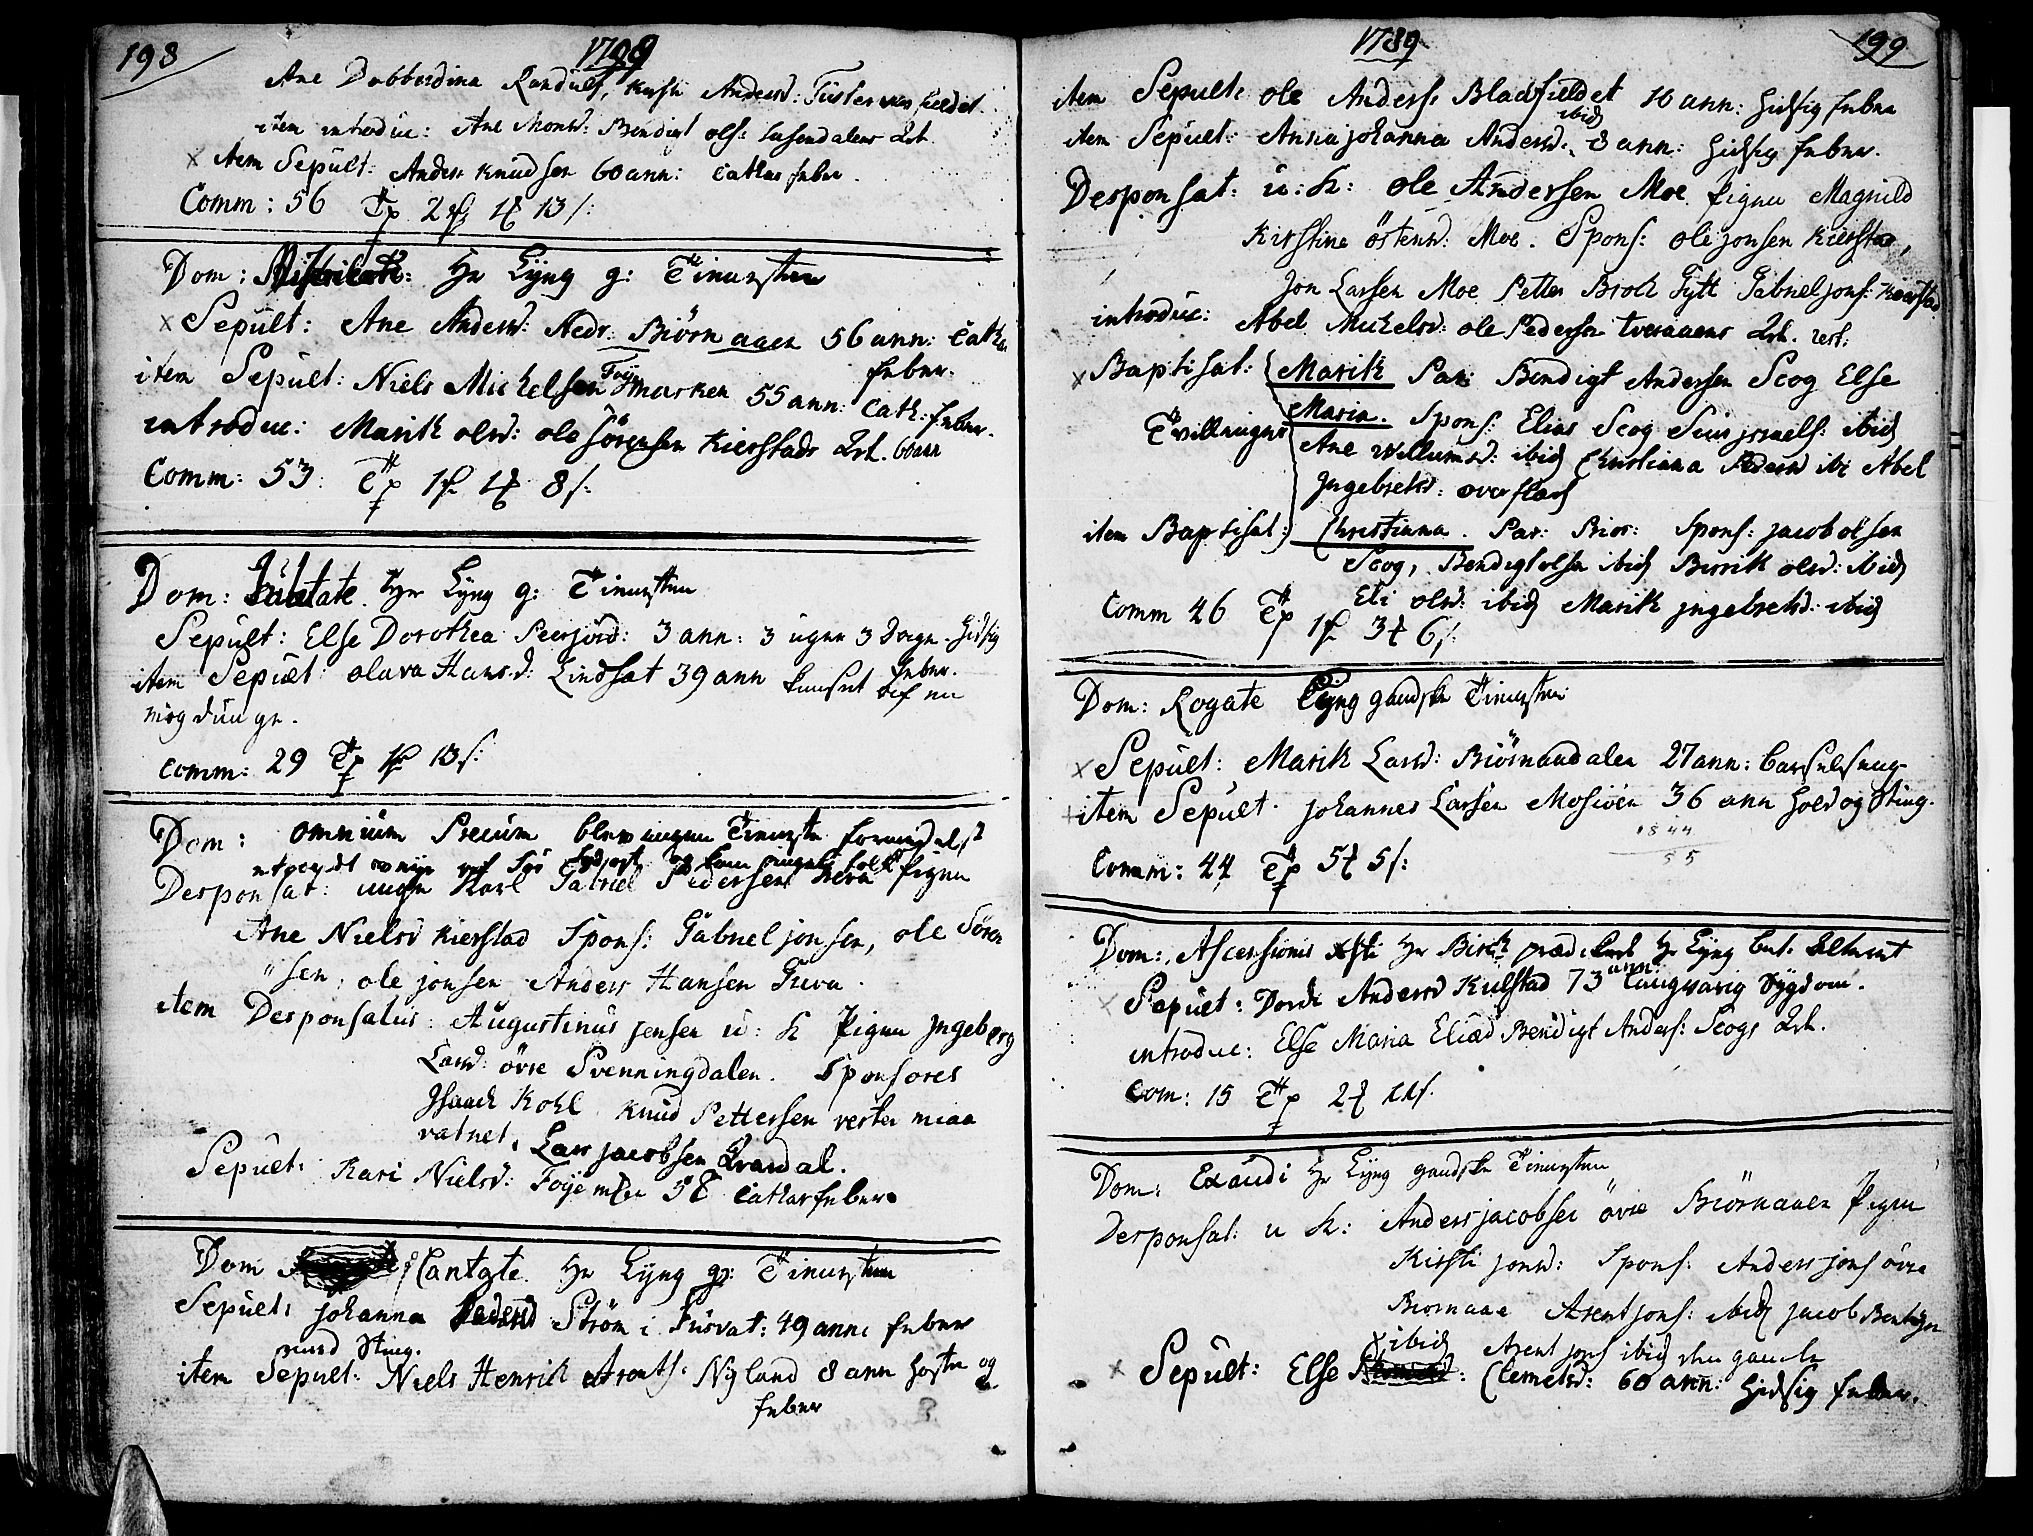 198
1789
Ane Dobberdina Randulf, Kirsti Andersd: Tustervasfieldet.
item introduc: Ane Monsd: Bendigt ols: Lusendalens Qvt
x item Sepult: Anders Knudsen 60 ann: Cathar feber.
Comm: 56 2 13 s:
Dom: Hr Lÿng g: Tienesten
x Sepult: Ane Andersd: Nedr: Biörn aaen 56 ann: Cath:
feber.
item Sepult: Niels Michelsen Föye marken 55 ann: Cath: feber.
introduc: Marik olsd: ole Sörensen Kierstads Qvt. 60 ann
Comm: 53: 8 s:
Dom: Jubilate Hr Lÿng g: Tienesten
Sepult: Else Dorothea Peersjord: 3 ann: 3 uger 3 Dage. hidsig
feber.
item Sepult olava Hansd: Lindset 39 ann
mögdunge.
Comm: 29 13 s:
Dom: omnium Precum blev ingen Tieneste formedelst
Desponsat: unge Karl Gabriel Pedersen Græva Pigen
Ane Nielsd Kierstad Spons: Gabriel jonsen, ole Sören
sen, ole jonsen Anders Hansen Greva.
item Desponsatus: Augustinus jensen u: K Pigen jngeborg
Larsd: övre Svenningdalen. Sponsores
Jsaach Kohl Knud Pettersen vester miaa
vatnet, Lars jacobsen Qvandal.
Sepult: Kari Nielsd: Föyemken 58 Catharfeber
Dom Cantate. Hr Lÿng g: Tienesten
Sepult: johanna Pedersd Ström i Fusvat: 49 ann: feber
med Sting.
item Sepult: Niels Henrich Arents: Nyland 8 ann hoste og
feber
1789
199
item Sepult: ole Anders: Bladfieldet 10 ann: hidsig feber
ibid
item Sepult: Anna johanna Andersd. 8 ann: hidsig feber.
Desponsat: u: K: ole Andersen Moe Pigen Magnild
Kirstine östensd: Moe. Spons: ole jonsen Kierstad,
Jon Larsen Moe Petter Broch Fytt Gabriel jons: Kierstad
introduc: Abel Michelsd: ole Pedersen tveraaens Qvt.
x Baptisat: Marik Par: Bendigt Andersen Scog Else
Maria. Spons: Elias Scog Siur jsraels: ibid
Tvillinger Ane Willumsd: ibid Christianna Pedersd ibi Abel
jngebretsd:
item Baptisat: Christianna. Par: Prior: Spons: jacob olsen
Scog, Bendigt olsen ibid Birrik olsd: ibid
Eli olsd: ibid Marik jngebretsd: ibid
Comm 46 3 6 s:
Dom: Rogate Lÿng gandske Tienesten
x Sepult: Marik Larsd: Biörnaadalen 27 ann: barselseng
item Sepult. johannes Larsen Mosiöen 36 ann hold og Sting.
1844
55
Comm: 44 5 5 s:
Dom: Ascensionis xsti Hr Birch prædiked Hr Lÿng bet. alteret
x Sepult: Dordi Andersd Kulstad 73 ann: langvarig Sygdom.
introduc: Else Maria Eliæd Bendigt Anders: Scogs Qvt.
Com: 15 2
Dom: Exaudi Hr Lÿng gandske Tienesten
Desponsat: u K: Anders jacobsen övre Biörnaaen Pigen
Kirsti jonsd: Spons: Anders jons övre
Biornaae Arent jons: ibid jacob Bentsen
ibid Arent jons ibid den gamle
x Sepult: Else Clemetsd: 60 ann: hidsig feber.